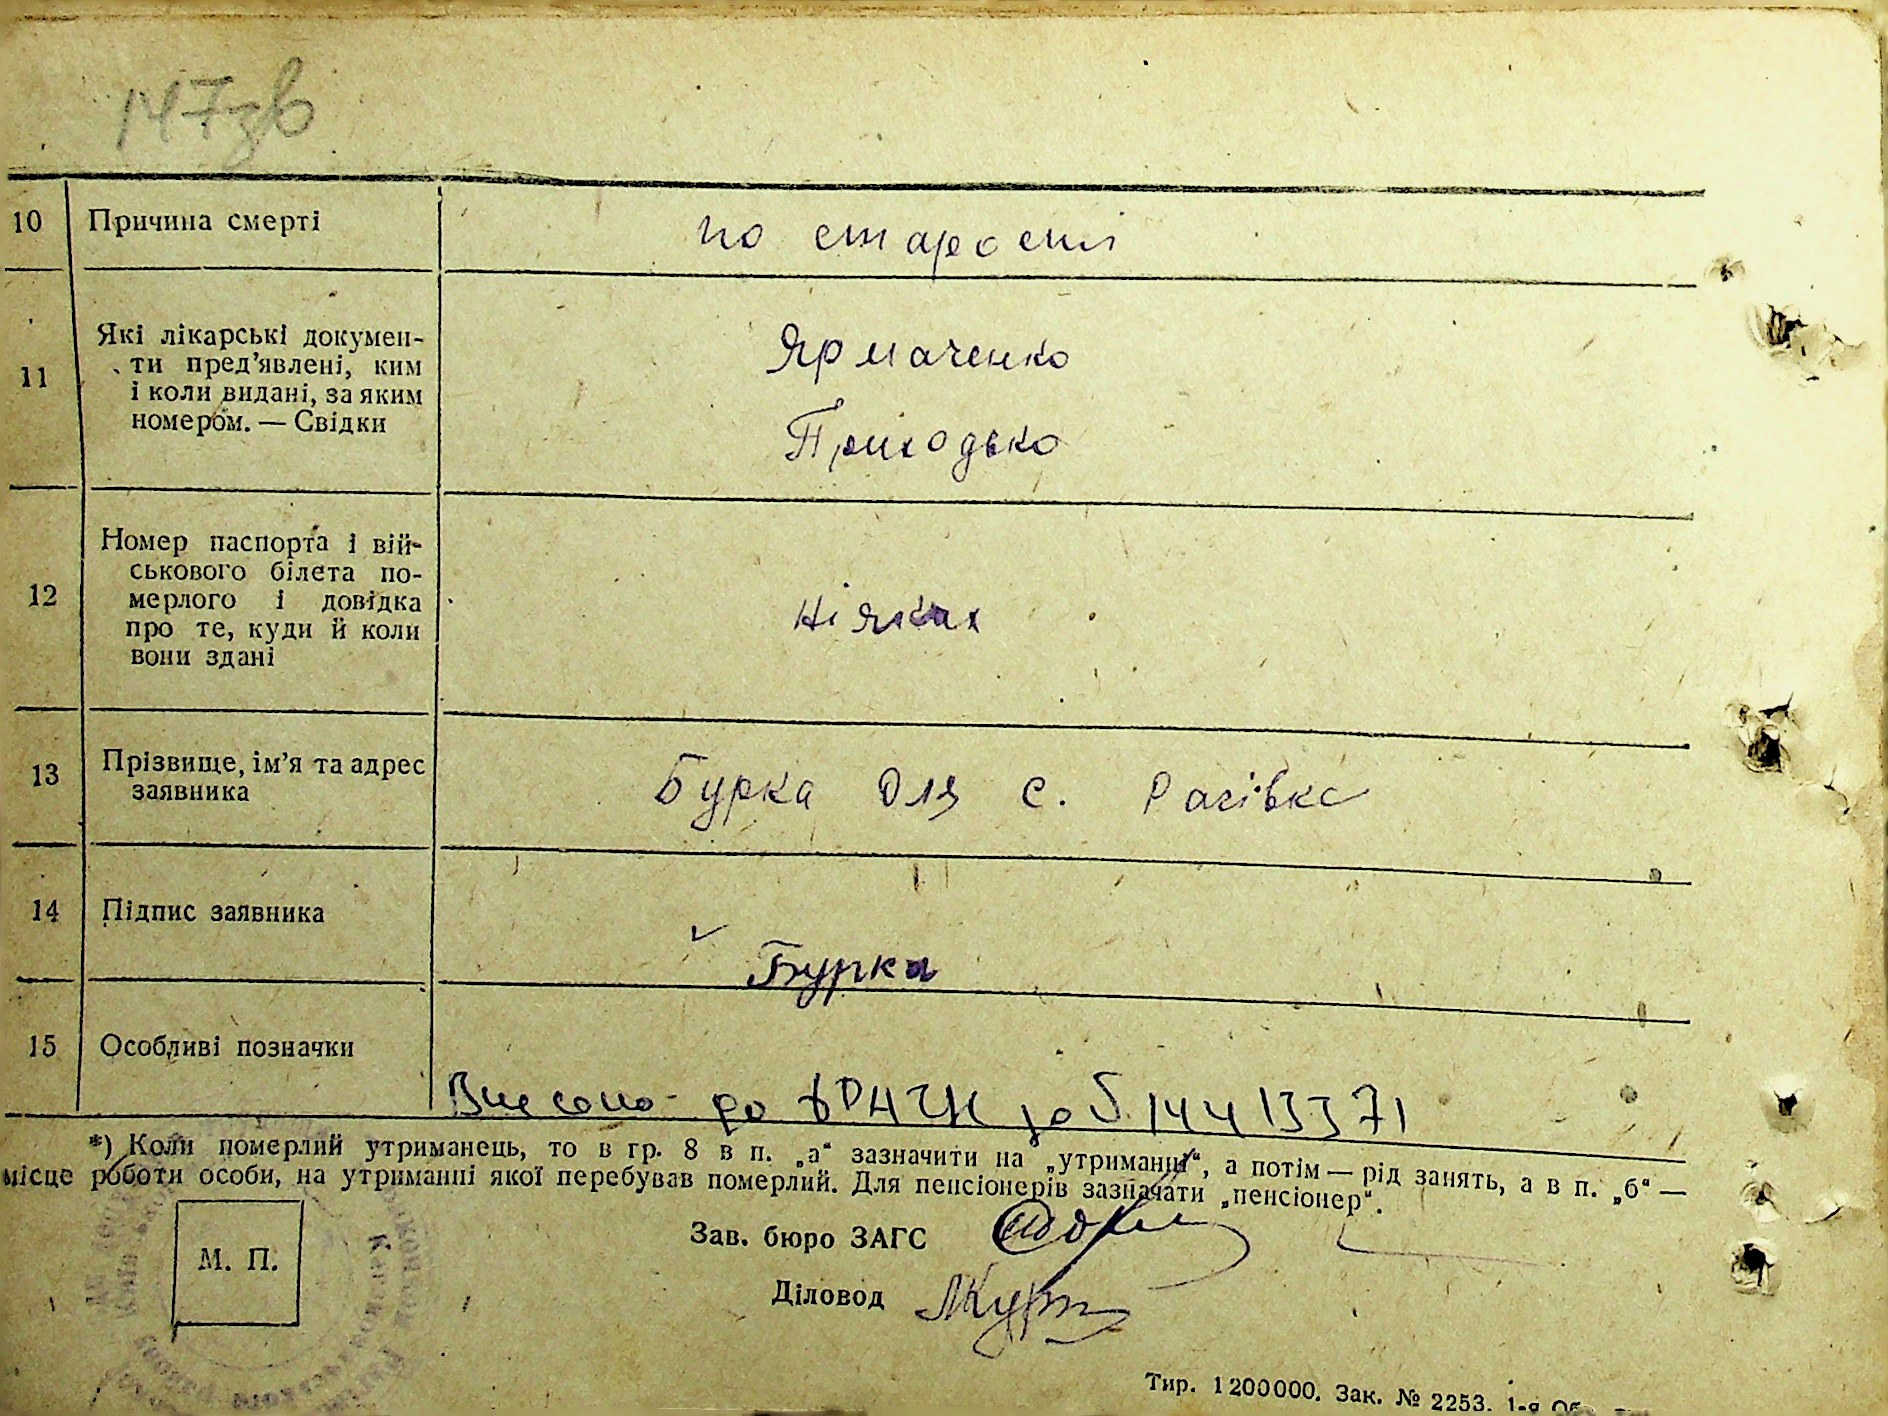 147зв
10 Причина смерті по старості
11 Які лікарські докумен-
ти пред’явлені, ким
і коли видані, за яким
номером. — Свідки
Ярмаченко
Приходько
12 Номер паспорта і вій-
ськового білета по-
мерлого і довідка
про те, куди й коли
вони здані
ніяких
13 Прізвище, ім’я та адрес
заявника
Бурка Оля с. Рагівка
14 Підпис заявника
Бурка
15 Особливі позначки
Внесено до ДРАЦС за № 14413371
*) Коли померлий утриманець, то в гр. 8 в п. „а“ зазначити на „утриманні“, а потім — рід занять, а в п. „б“ —
місце роботи особи, на утриманні якої перебував померлий. Для пенсіонерів зазначати „пенсіонер“.
М. П.
Зав. бюро ЗАГС
Діловод
Тир. 1200000. Зак. № 2253. 1-я